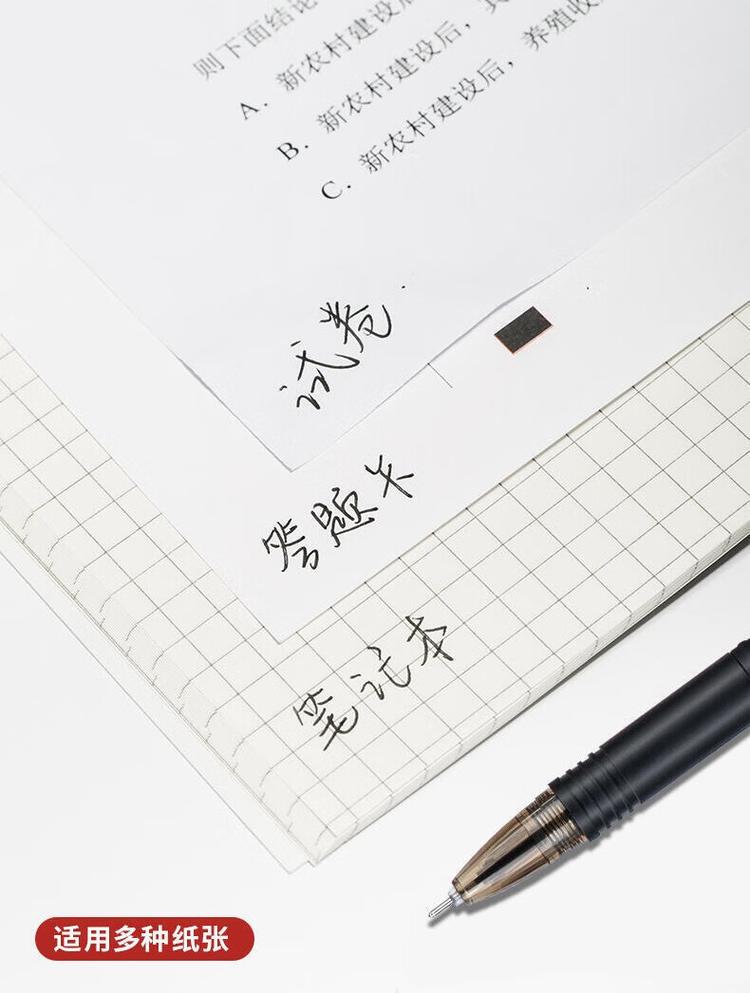 则下面结论
A. 新农村建设后
B. 新农村建设后，
C. 新农村建设后，养殖收
试卷
答题卡
笔记本
适用多种纸张